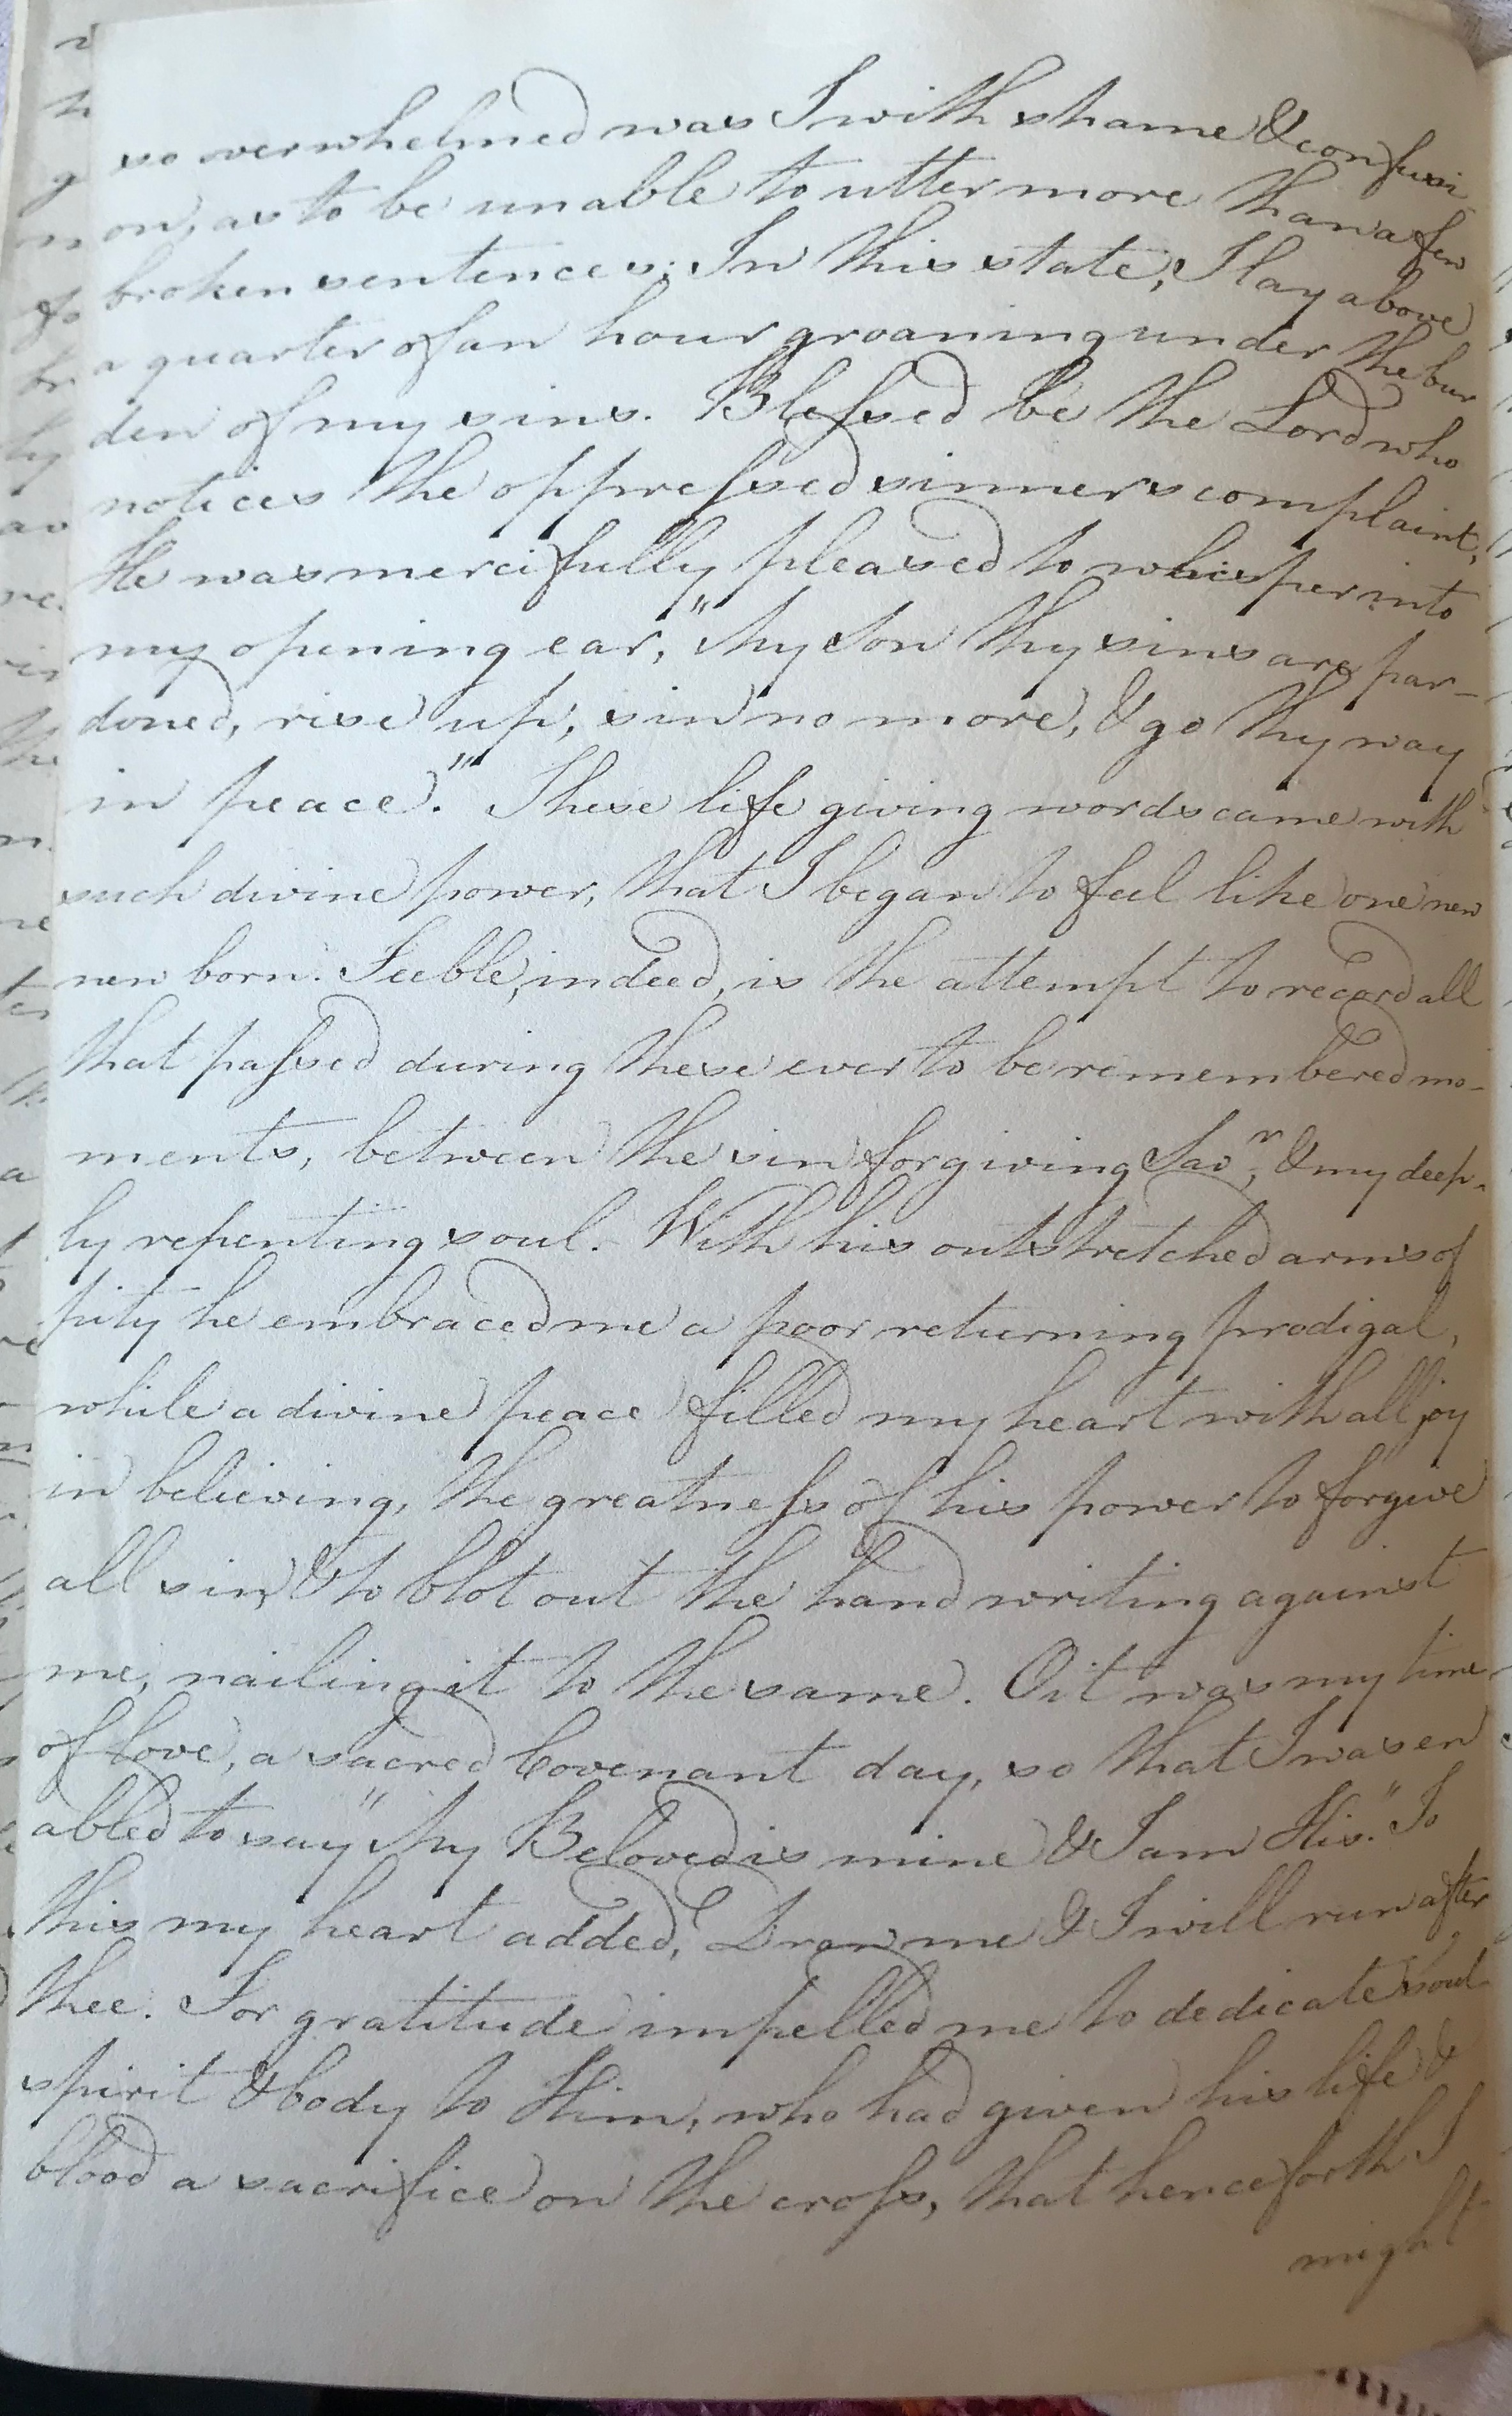 so overwhelmed was I with shame & confusi
on, as to be unable to utter more than a few
broken sentences. In this state, I lay above
a quarter of an hour groaning under the bur
den of my sins. Blessed be the Lord who
notices the oppressed sinners complaint,
He was mercifully pleased to whisper into
my opening ear, "My Son thy sins are par-
doned, rise up, sin no more, & go thy way
in peace." These life giving words came with
such divine power, that I began to feel like one new
new born. Feeble, indeed, is the attempt to record all
that passed during these ever to be remembered mo-
ments, between the sin forgiving Savr, & my deep-
ly repenting soul. With his outstretched arms of
pity he embraced me a poor returning prodigal,
while a divine peace filled my heart with all joy
in believing, the greatness of his power to forgive
all sin, & to blot out the hand writing against
me, nailing it to the same. O it was my time
of love, a sacred Covenant day, so that I was en
abled to say "My Beloved is mine & I am His." To
this my heart added, Draw me & I will run after
thee. For gratitude impelled me to dedicate soul
spirit & body to Him, who had given his life &
blood a sacrifice on the cross, that henceforth I
might